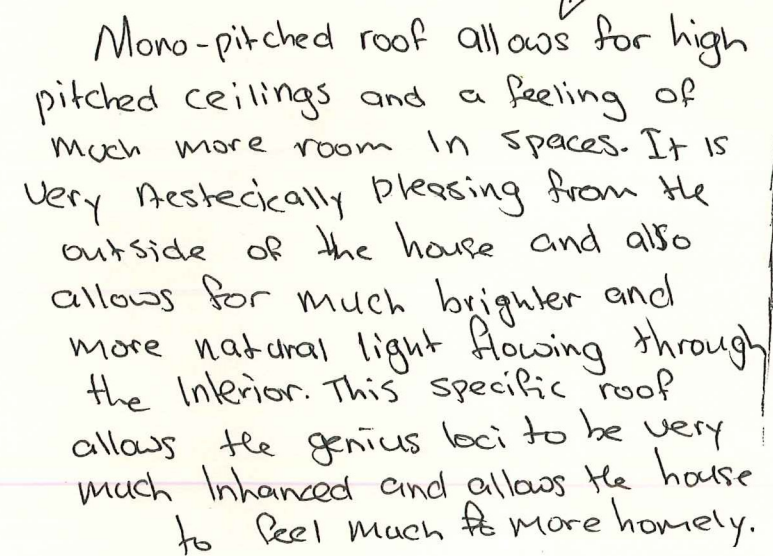 Mono-pitched roof allows for high
pitched ceilings and a feeling of
much more room in spaces. It is
very Aestecically pleasing from the
outside of the house and also
allows for much brighter and
more natural light flowing through
the Interior. This specific roof
allows the genius loci to be very
much Inhanced and allows the house
to feel much more homely.